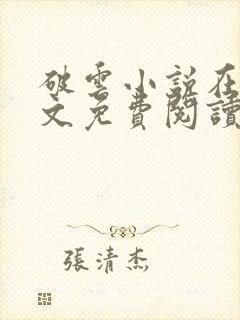 破雲小說在
文免費閱讀
張清杰